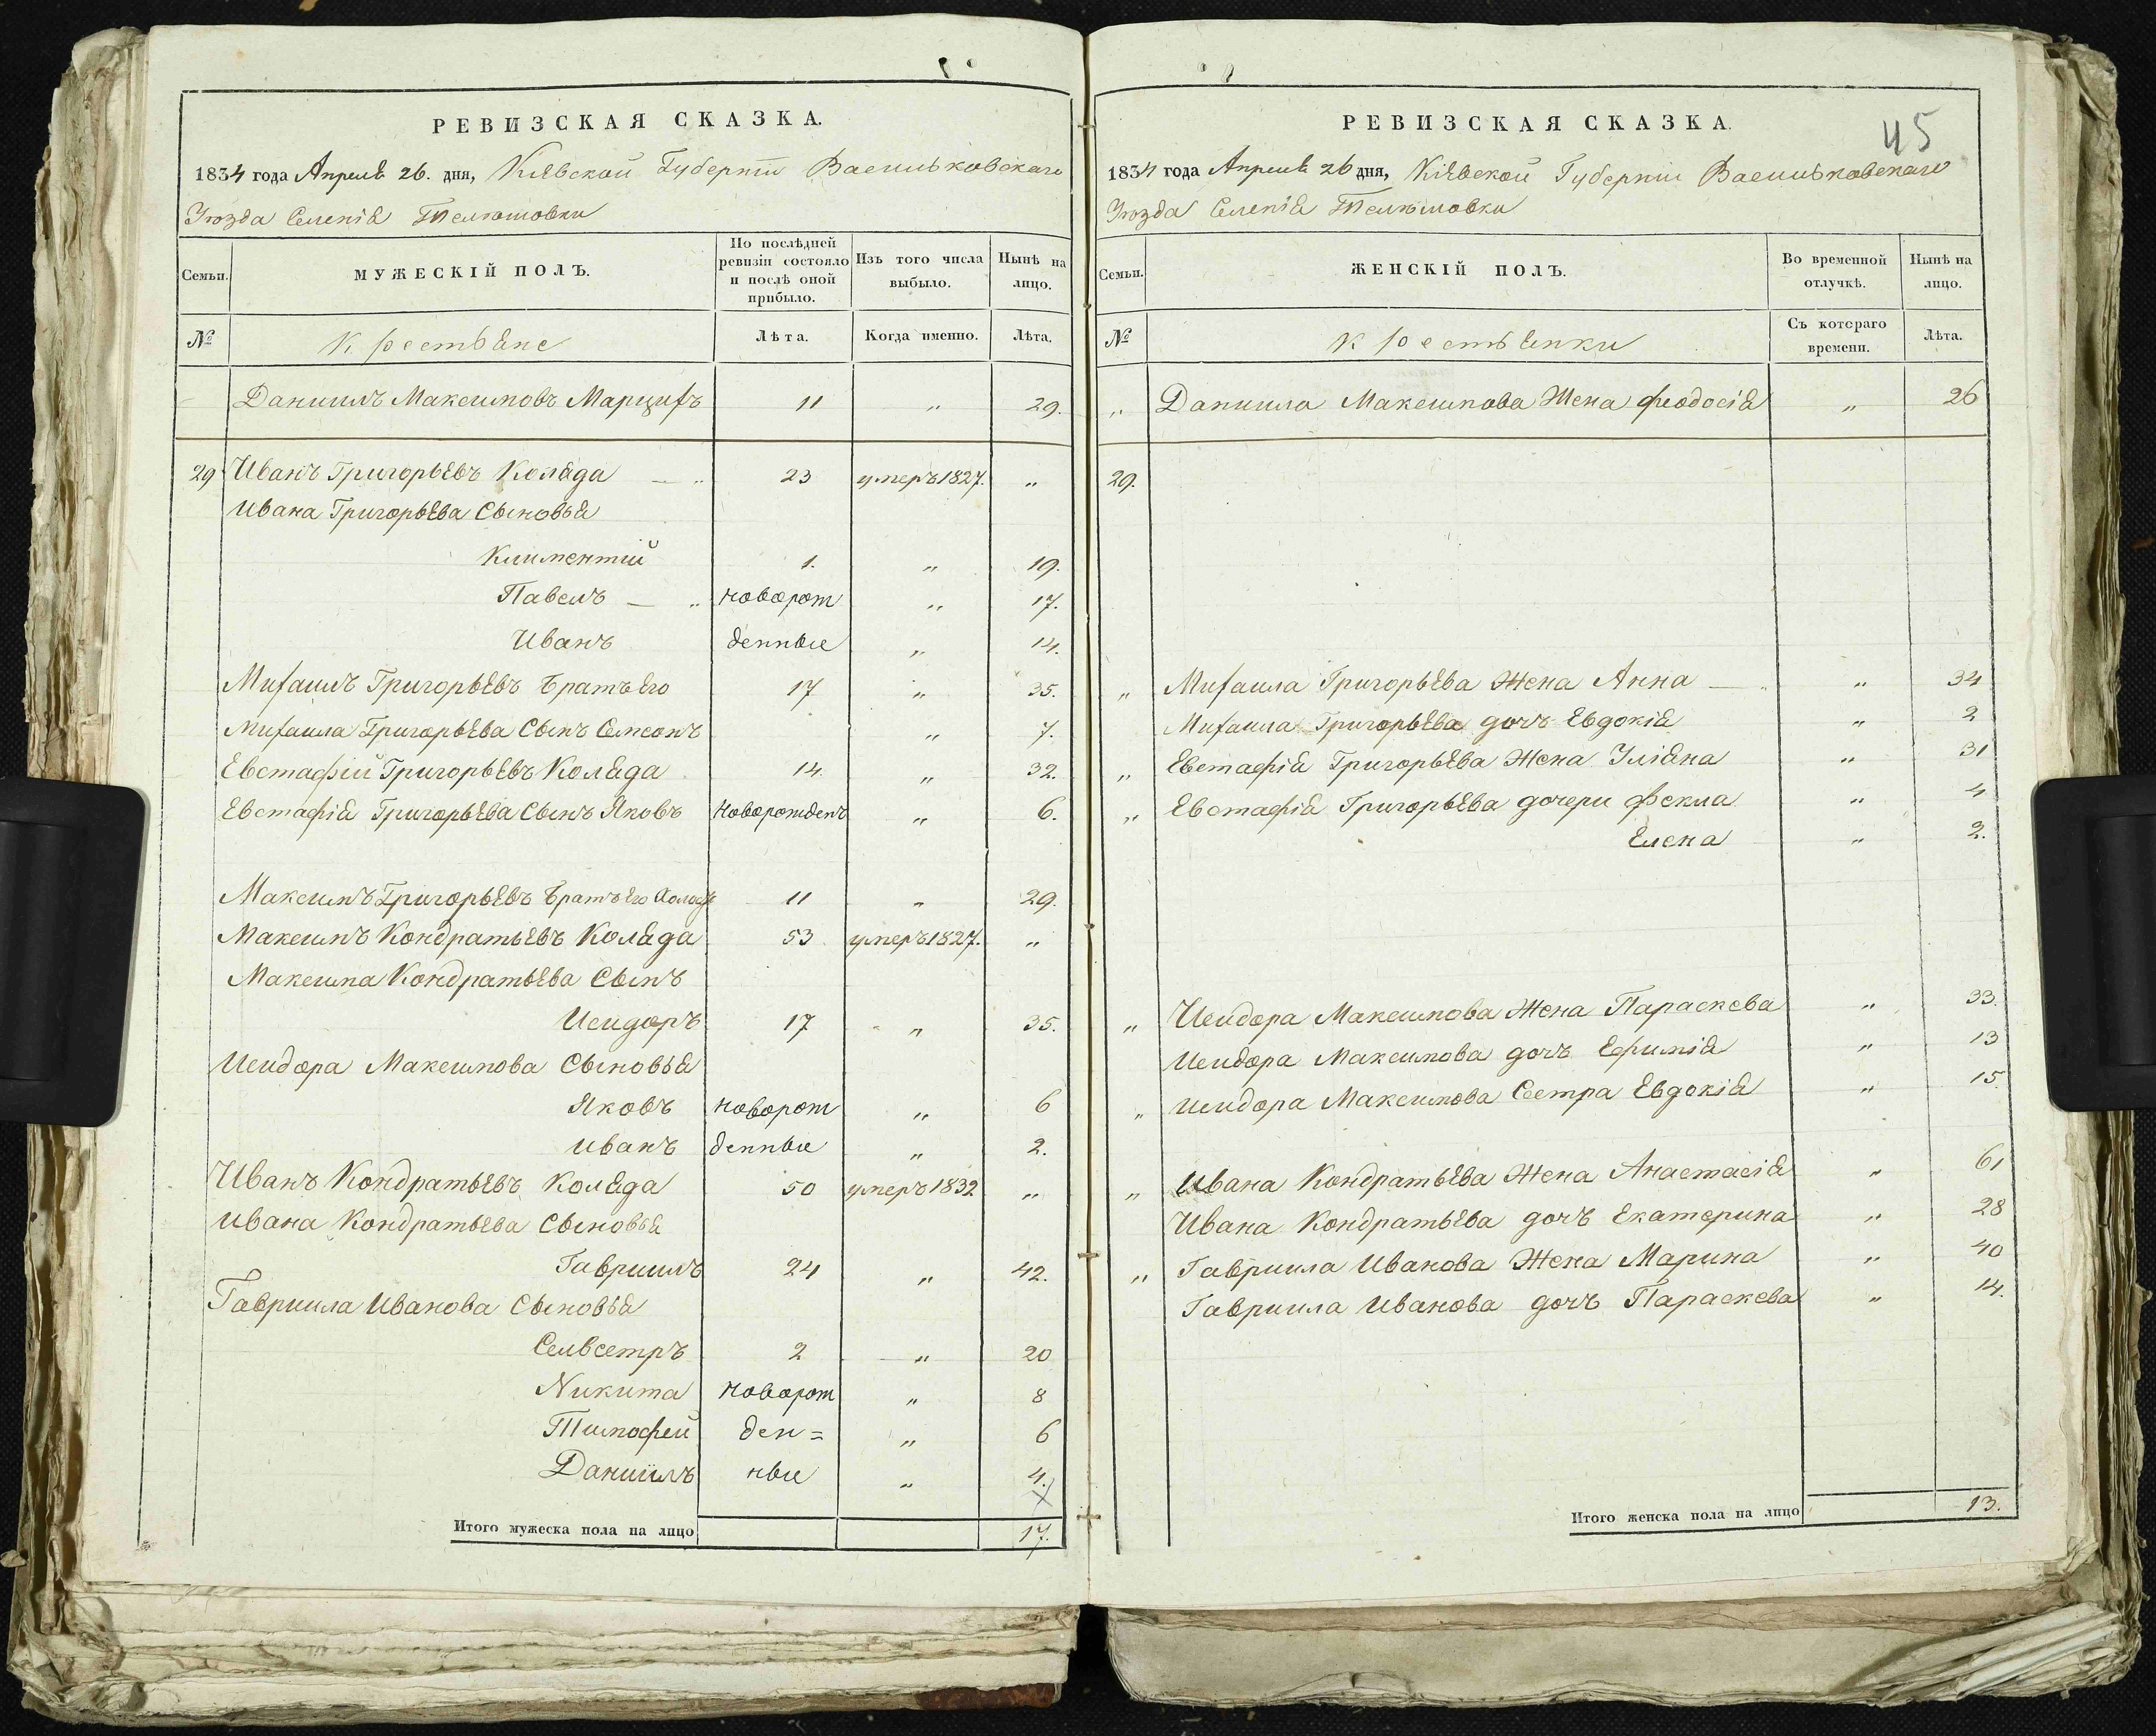 РЕВИЗСКАЯ СКАЗКА.
1834 года Апреля 26. дня, Кіевской Губерніи Васильковскаго
Уѣзда Селенія Телешовки
Семьи. МУЖЕСКІЙ ПОЛЪ. По послѣдней ревизіи состояло и послѣ оной прибыло. Изъ того числа выбыло. Нынѣ на лицо.
№ Крестьяне Лѣта. Когда именно. Лѣта.
Даниилъ Максимовъ 11 „ 29.
29 Иванъ Григорьевъ Коляда — „ 23 умеръ 1827. „
Ивана Григорьева Сыновья
Климентій 1. „ 19.
Павелъ — „ новорож „ 17.
Иванъ денные „ 14.
Михаилъ Григорьевъ Братъ Его 17 „ 35.
Михаила Григорьева Сынъ Самсонъ „ 7.
Евстафій Григорьевъ Коляда 14. „ 32.
Евстафія Григорьева Сынъ Яковъ Новорожденъ „ 6.
Максимъ Григорьевъ Братъ Его 11 „ 29.
Максимъ Кондратьевъ Коляда 53 умеръ 1827. „
Максима Кондратьева Сынъ
Исидоръ 17 „ 35.
Исидора Максимова Сыновья
Яковъ новорож „ 6
Иванъ денные „ 2.
Иванъ Кондратьевъ Коляда 50 умеръ 1832 „
Ивана Кондратьева Сыновья
Гавриилъ 24 „ 42.
Гавриила Иванова Сыновья
Селвестръ 2 „ 20
Никита новорож „ 8
Тимофей ден= „ 6
Даниилъ ные „ 4.
Итого мужеска пола на лицо 17.
РЕВИЗСКАЯ СКАЗКА.
45
1834 года Апреля 26 дня, Кіевской Губерніи Васильковскаго
Уѣзда Селенія Телешовки
Семьи. ЖЕНСКІЙ ПОЛЪ. Во временной отлучкѣ. Нынѣ на лицо.
№ Крестьянки Съ котораго времени. Лѣта.
„ Даниила Максимова Жена Феодосія „ 26
29.
„ Михаила Григорьева Жена Анна — „ „ 34
Михаила Григорьева дочь Евдокія „ 2
„ Евстафія Григорьева Жена Уліяна „ 31
„ Евстафія Григорьева дочери Фекла „ 4
Елена „ 2.
„ Исидора Максимова Жена Параскева „ 33.
Исидора Максимова дочь Ефимія „ 13
„ Исидора Максимова Сестра Евдокія „ 15.
„ Ивана Кондратьева Жена Анастасія „ 61
Ивана Кондратьева дочь Екатерина „ 28
„ Гавриила Иванова Жена Марина „ 40
Гавриила Иванова дочь Параскева „ 14.
Итого женска пола на лицо 13.